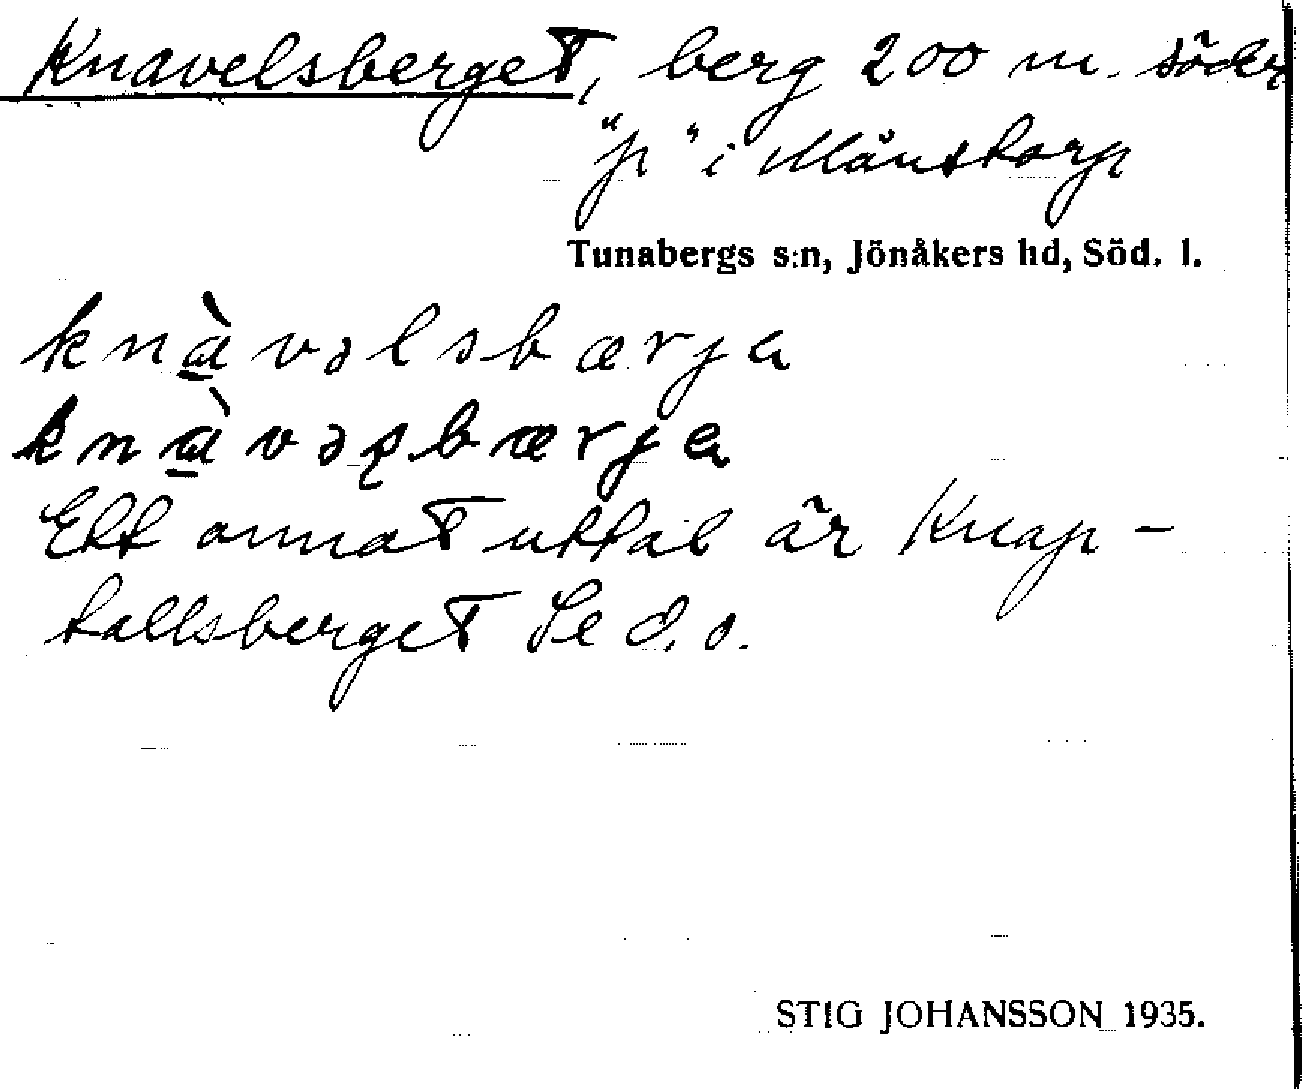 Knavelsberget, berg 200 m. söder
"p" i Månstorp
Tunabergs s:n, Jönåkers hd, Söd. l.
knɑ̀vəlsbærja
knɑ̀vəʂbærja
Ett annat uttal är Knap-
tallsberget Se d. o.
STIG JOHANSSON 1935.